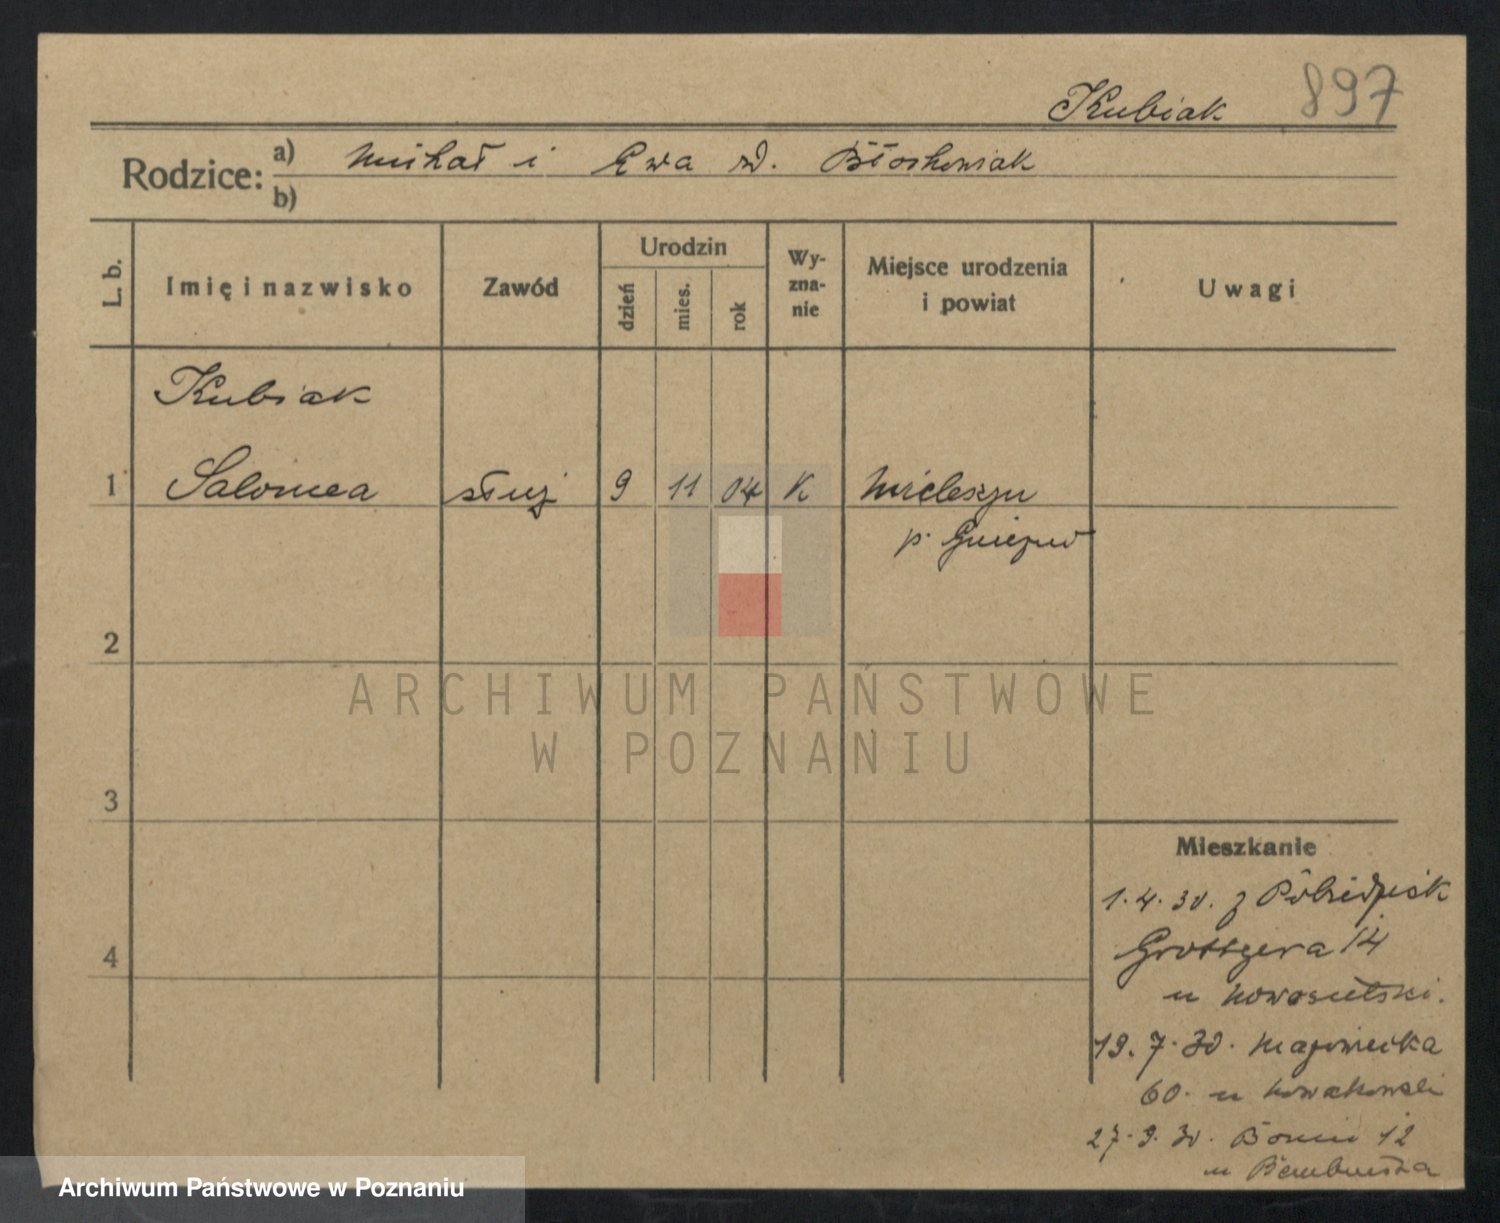 Kubiak 897
Rodzice: a) Michał i Ewa rd. Błoskowiak
b)
L. b. Imię i nazwisko Zawód Urodzin dzień mies. rok Wyznanie Miejsce urodzenia i powiat Uwagi
Kubiak
1 Salomea służ 9 11 04 K Mieleszyn
p. Gniezno
2
3
4
Mieszkanie
1.4.30. z Pobiedzisk
Grottgera 14
u
19.7.30. Mazowiecka
60. u Nowakowski
27.9.30. 12
u
ARCHIWUM PAŃSTWOWE
W POZNANIU
Archiwum Państwowe w Poznaniu